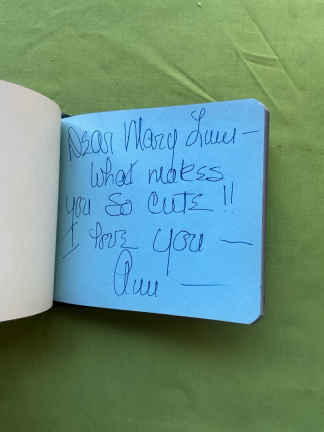 Dear Mary Lynn —
what makes
you so cute!!
I love you —
Ann —